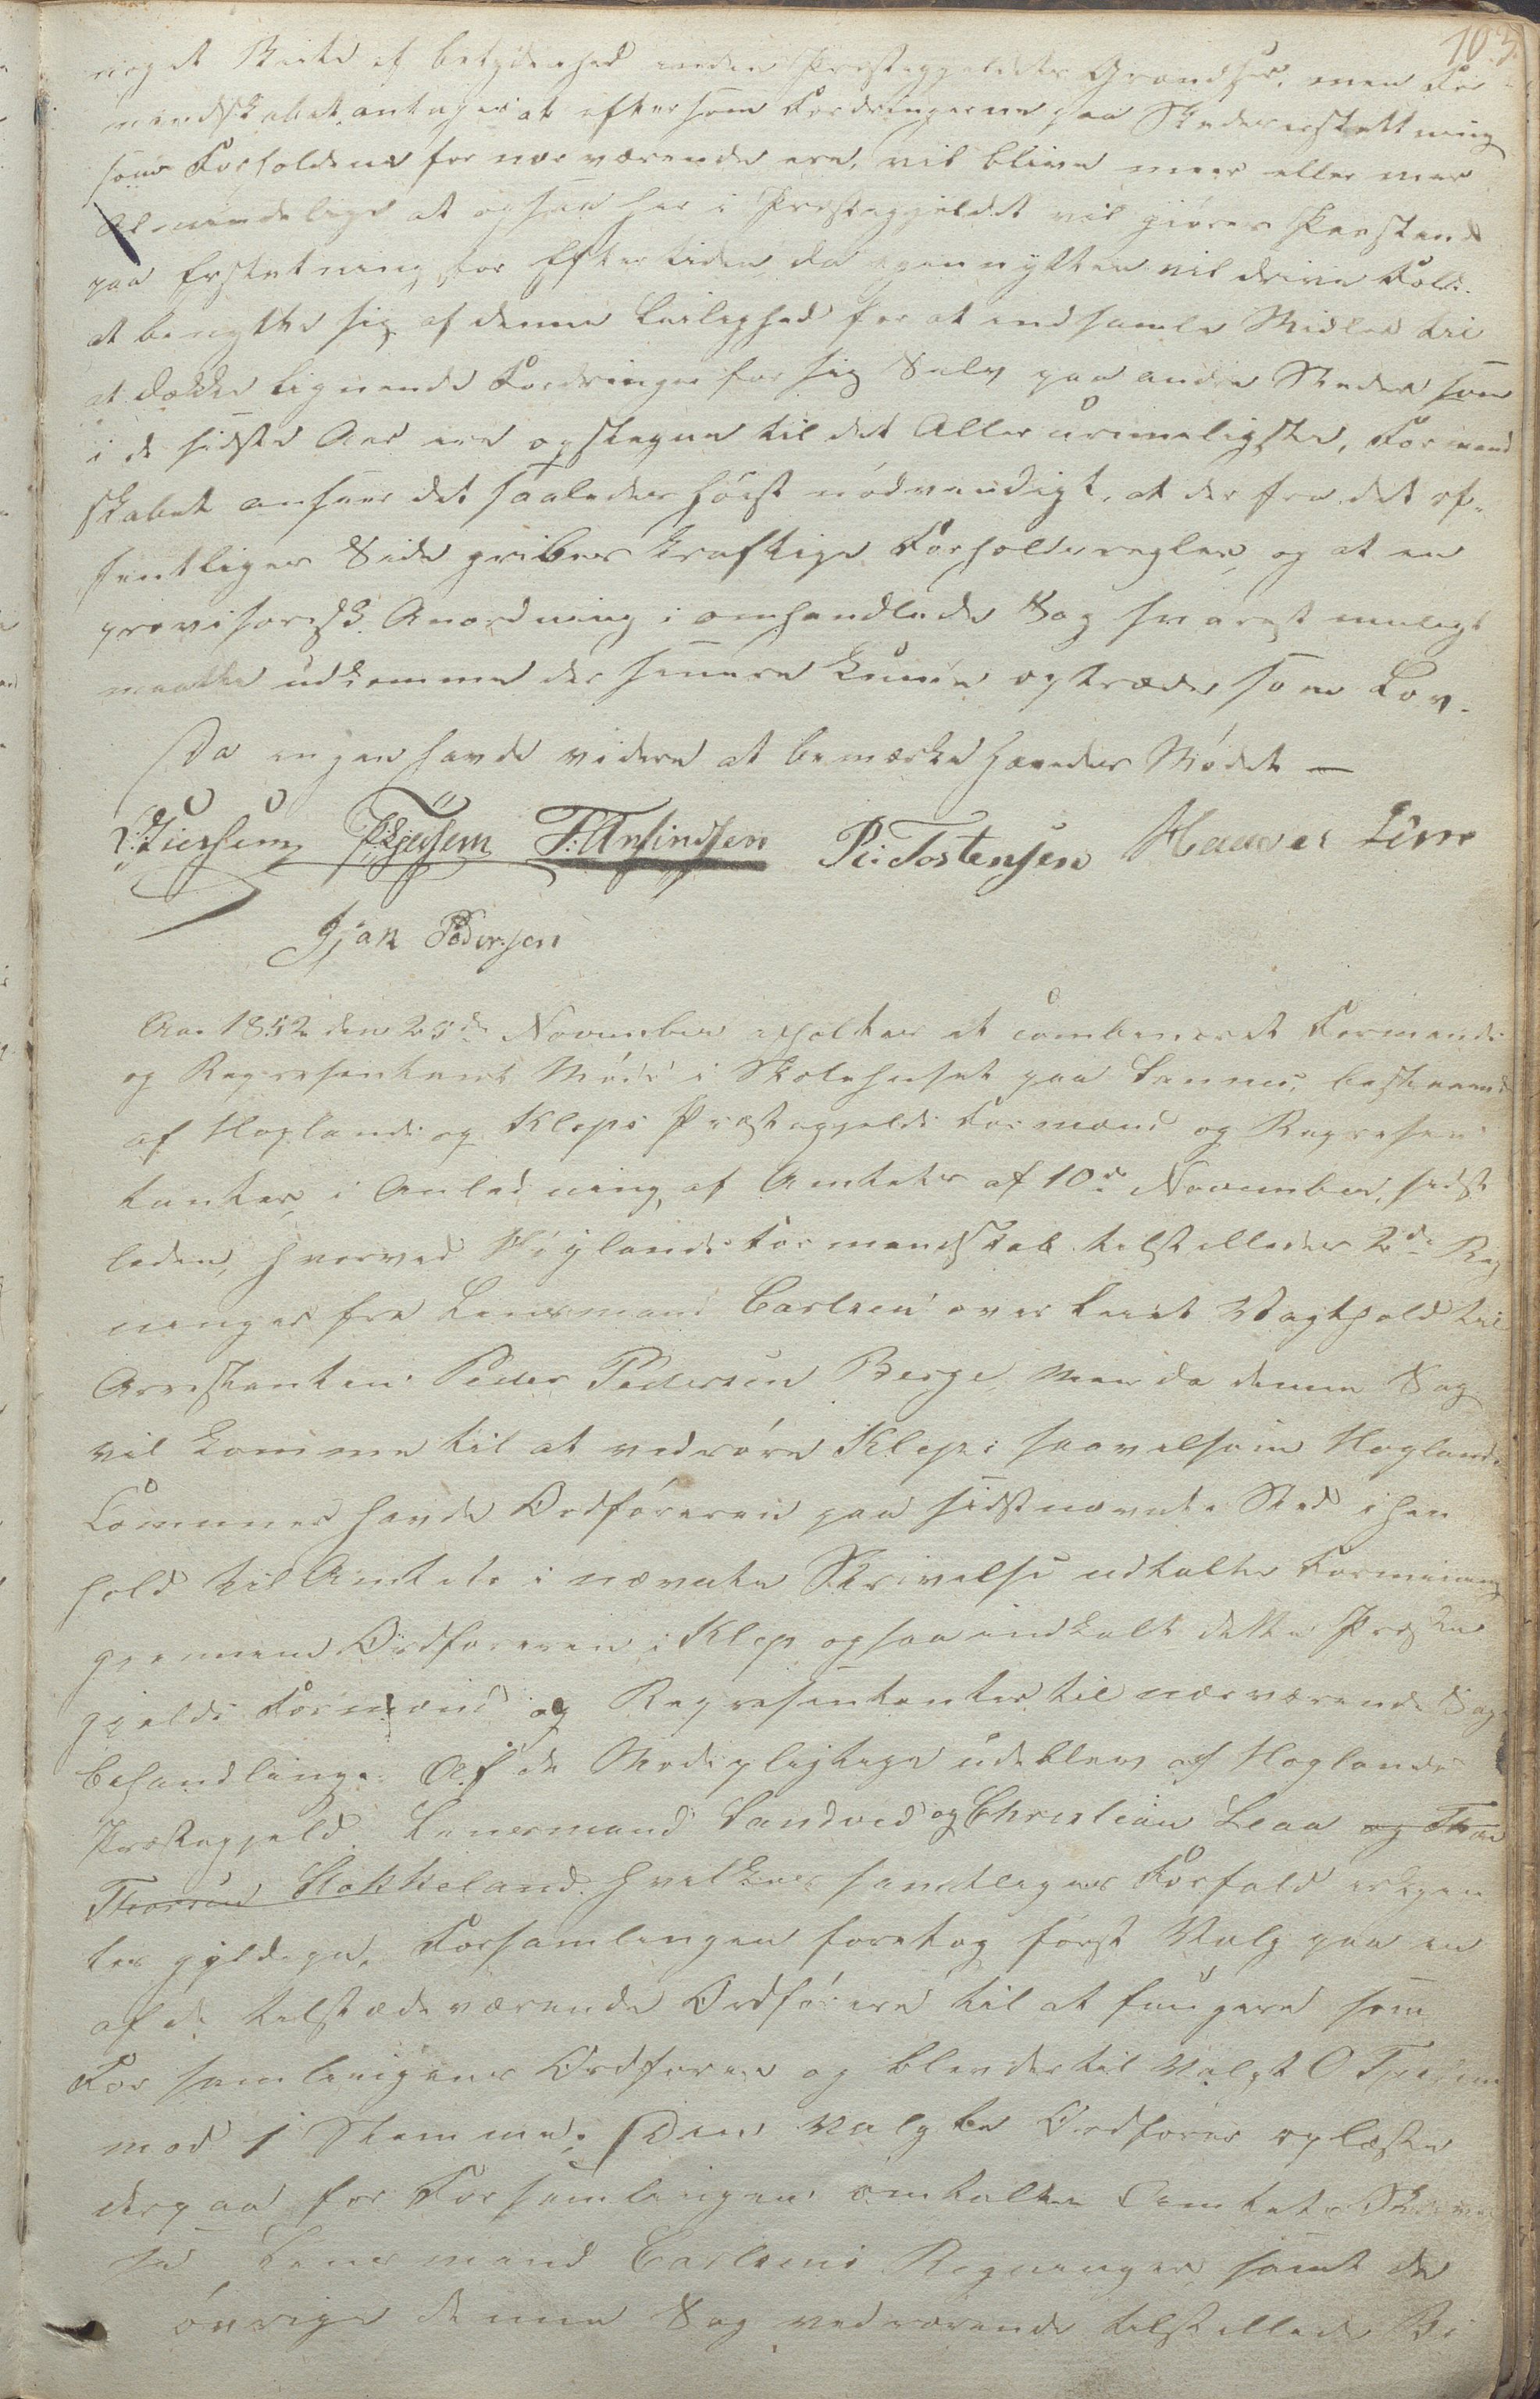 103
noget Strikt af betydenhed inden Præstegjeldets Grændser, men For-
mandskabet antager at eftersom Fordringerne paa Skadeserstattning
som Forholdene for nærværende ere, vil blive meer eller mer
Almindelige at ogsaa her i Præstegjeldet vil giøres Paastand
paa Erstatning for Eftertiden, da egennytten vil drive Folk
at benytte sig af denne Leilighed for at indsamle Midler til
at dække lignende Fordringer for sig Selv paa andre Steder som
i de sidste Aar ere opstegne til det Aller urimeligste, Formand
skabet anseer det saaledes høist nødvendigt, at der fra det of-
fentliges Side gribes kraftige Forholdsregler og at en
provisorisk Anordning i omhandlede Sag snarest muligt
maatte udkomme der senere kunne optræde som Lov.
Da ingen havde videre at bemærke hævedes Mødet —
O: Tiersem T: Asvindsen P: Tostensen Haaver Lim
Gjan Pedersen
Aar 1852 den 25de November afholdtes et combineret Formands
og Repræsentant Møde i Skolehuset paa Sannes, bestaaende
af Høglands og Kleps Præstegjelds Formænd og Repræsen
tanter, i Anledning af Amtets af 10de November sidst
leden, hvorved Høylands Formandskab tilstilledes 2de Reg
ninger fra Lensmand Carlsen over leiet Vagthold til
Arrestanten Peder Pedersen Berge, Men da denne Sag
vil komme til at vedrøre Kleps saavelsom Høglands
Communer havde Ordføreren paa sidstnævnte Sted i hen
hold til Amtets i nævnte Skrivelse udtalte Formening
gjennem Ordføreren i Klep ogsaa indkaldt dette Præste
gjelds Formænd og Repræsentanter til nærværende Sags
behandling. Af de Mødepligtige udeblev af Høglands
Præstegjeld Lensmand Sandved og Christian Leaa og Thore
Thorsen Stokkeland hvilkes samtliges Forfald erkjen
tes gyldige. Forsamlingen foretog først Valg paa en
af de tilstædeværende Ordførere til at fungere som
Forsamlingens Ordfører og blev dertil Valgt O Tiersem
mod 1 Stemme. Den valgte Ordfører oplæste
derpaa for Forsamlingen omtalte Amtets Skrivel
se Lensmand Carlsens Regninger samt de
øvrige denne Sag vedrørende tilstillede Bi